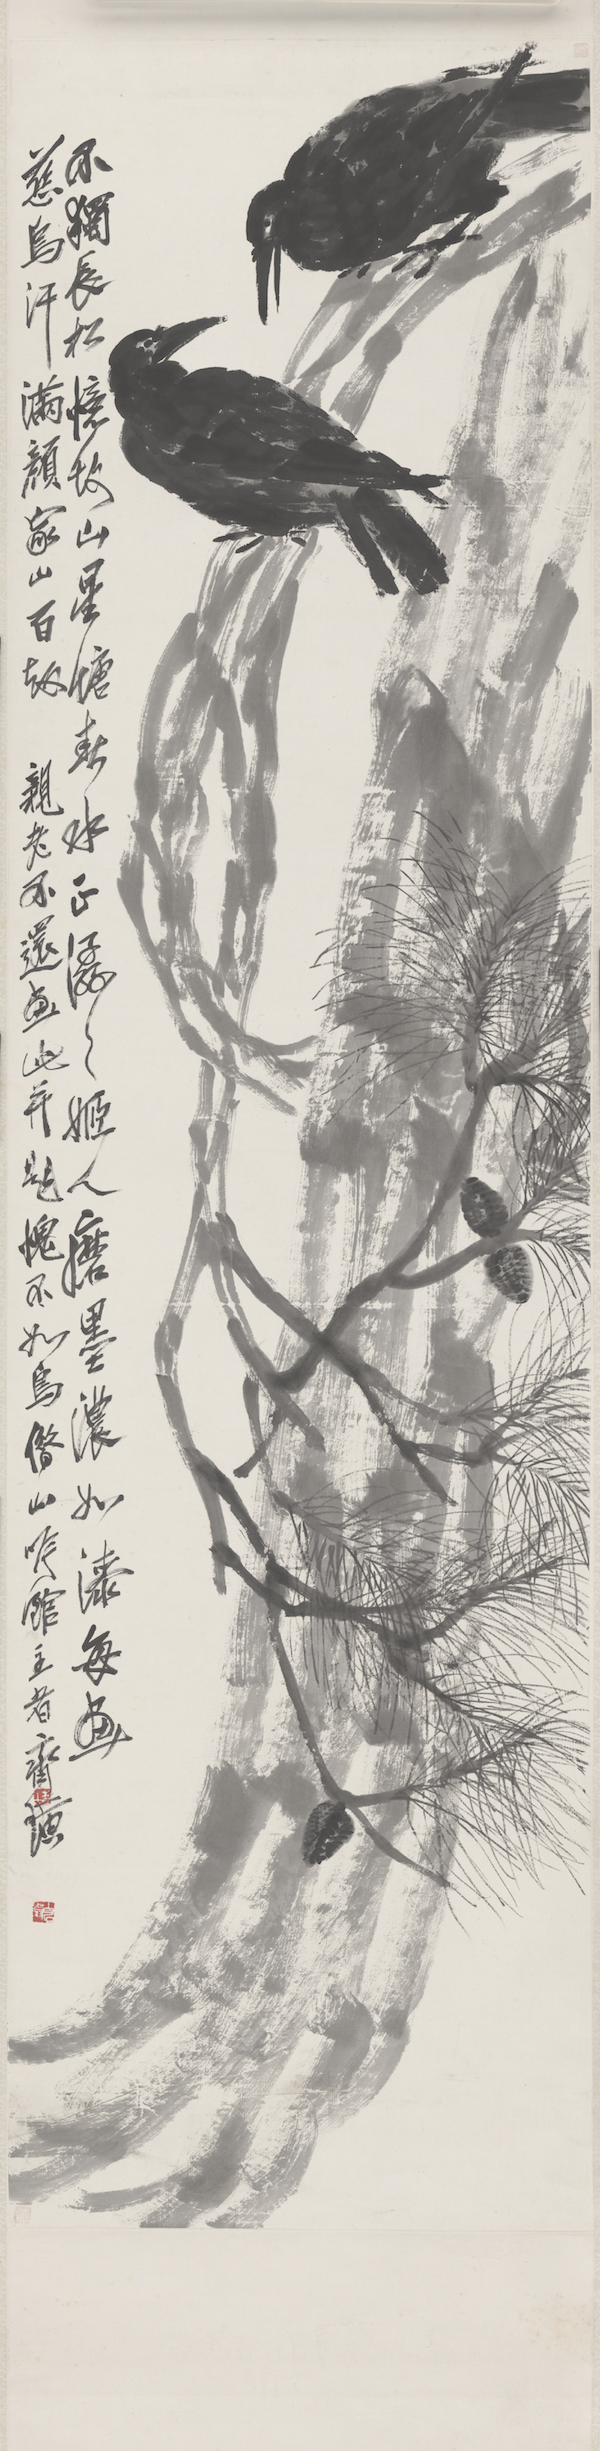 不獨長松憶故山星塘春水正潺々姬人磨墨濃如漆每畫
慈烏汗滿顏家山百劫親老不還畫此并題愧不如烏借山吟館主者齊璜